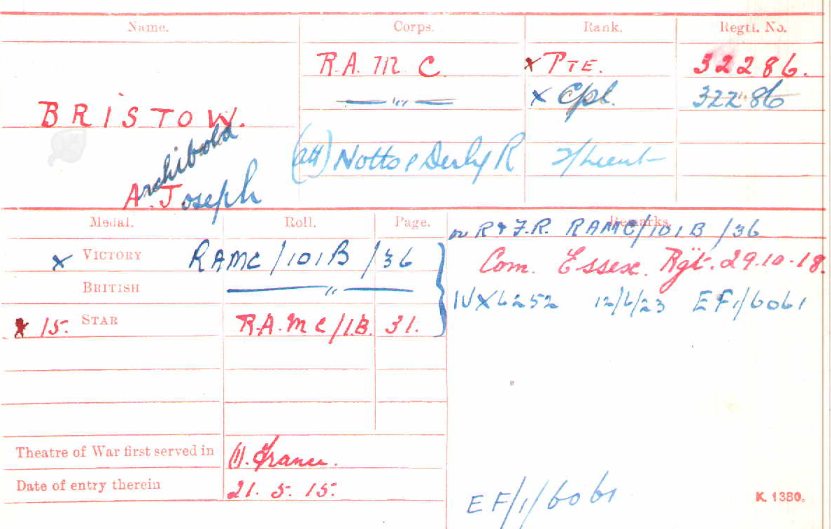 Name. Corps. Rank. Regtl. No.
R.A.M.C. x PTE. 32286.
— " — x Cpl. 32286
BRISTOW.
Archibald
A. Joseph
(att) Notts & Derby R 2/Lieut
Medal. Roll. Page. Remarks.
R & F.R. RAMC/101B/36
x VICTORY RAMC/101B/36
Com. Essex. Rgt. 29.10.18.
BRITISH — " —
IVX6252 12/6/23 EF1/6061
x 15. STAR R.A.M.C/1B. 31.
Theatre of War first served in (1). France.
Date of entry therein 21. 5. 15.
EF/1/6061
K. 1380.